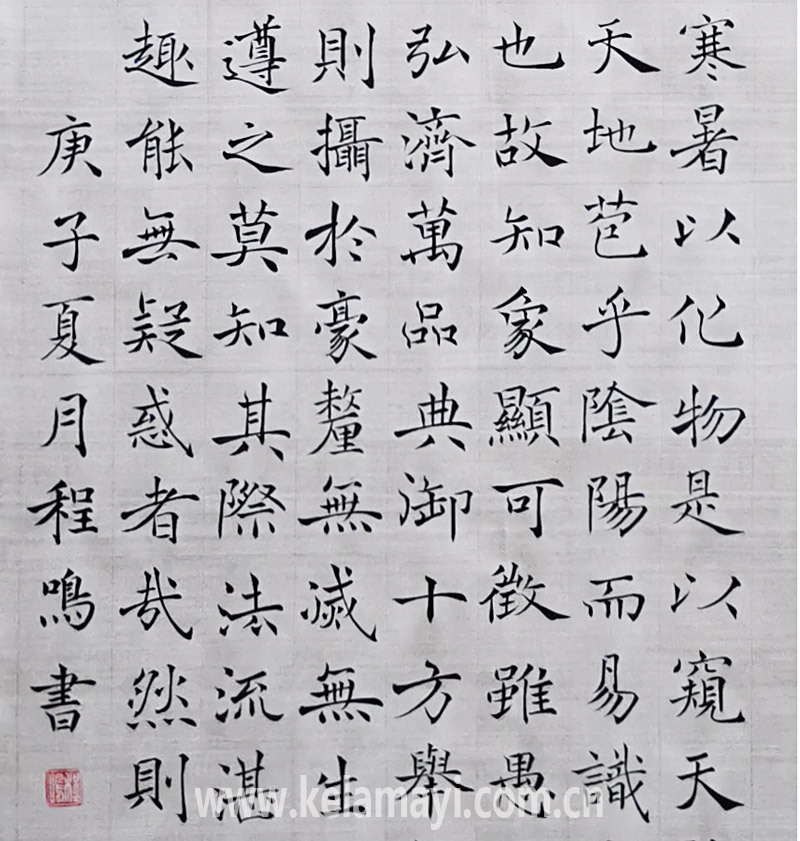 寒暑以化物是以窺天
天地苞乎陰陽而易識
也故知象顯可徵雖愚
弘濟萬品典御十方舉
則攝於豪釐無滅無生
遵之莫知其際法流湛
趣能無疑惑者哉然則
庚子夏月程鳴書
www.kelamayi.com.cn